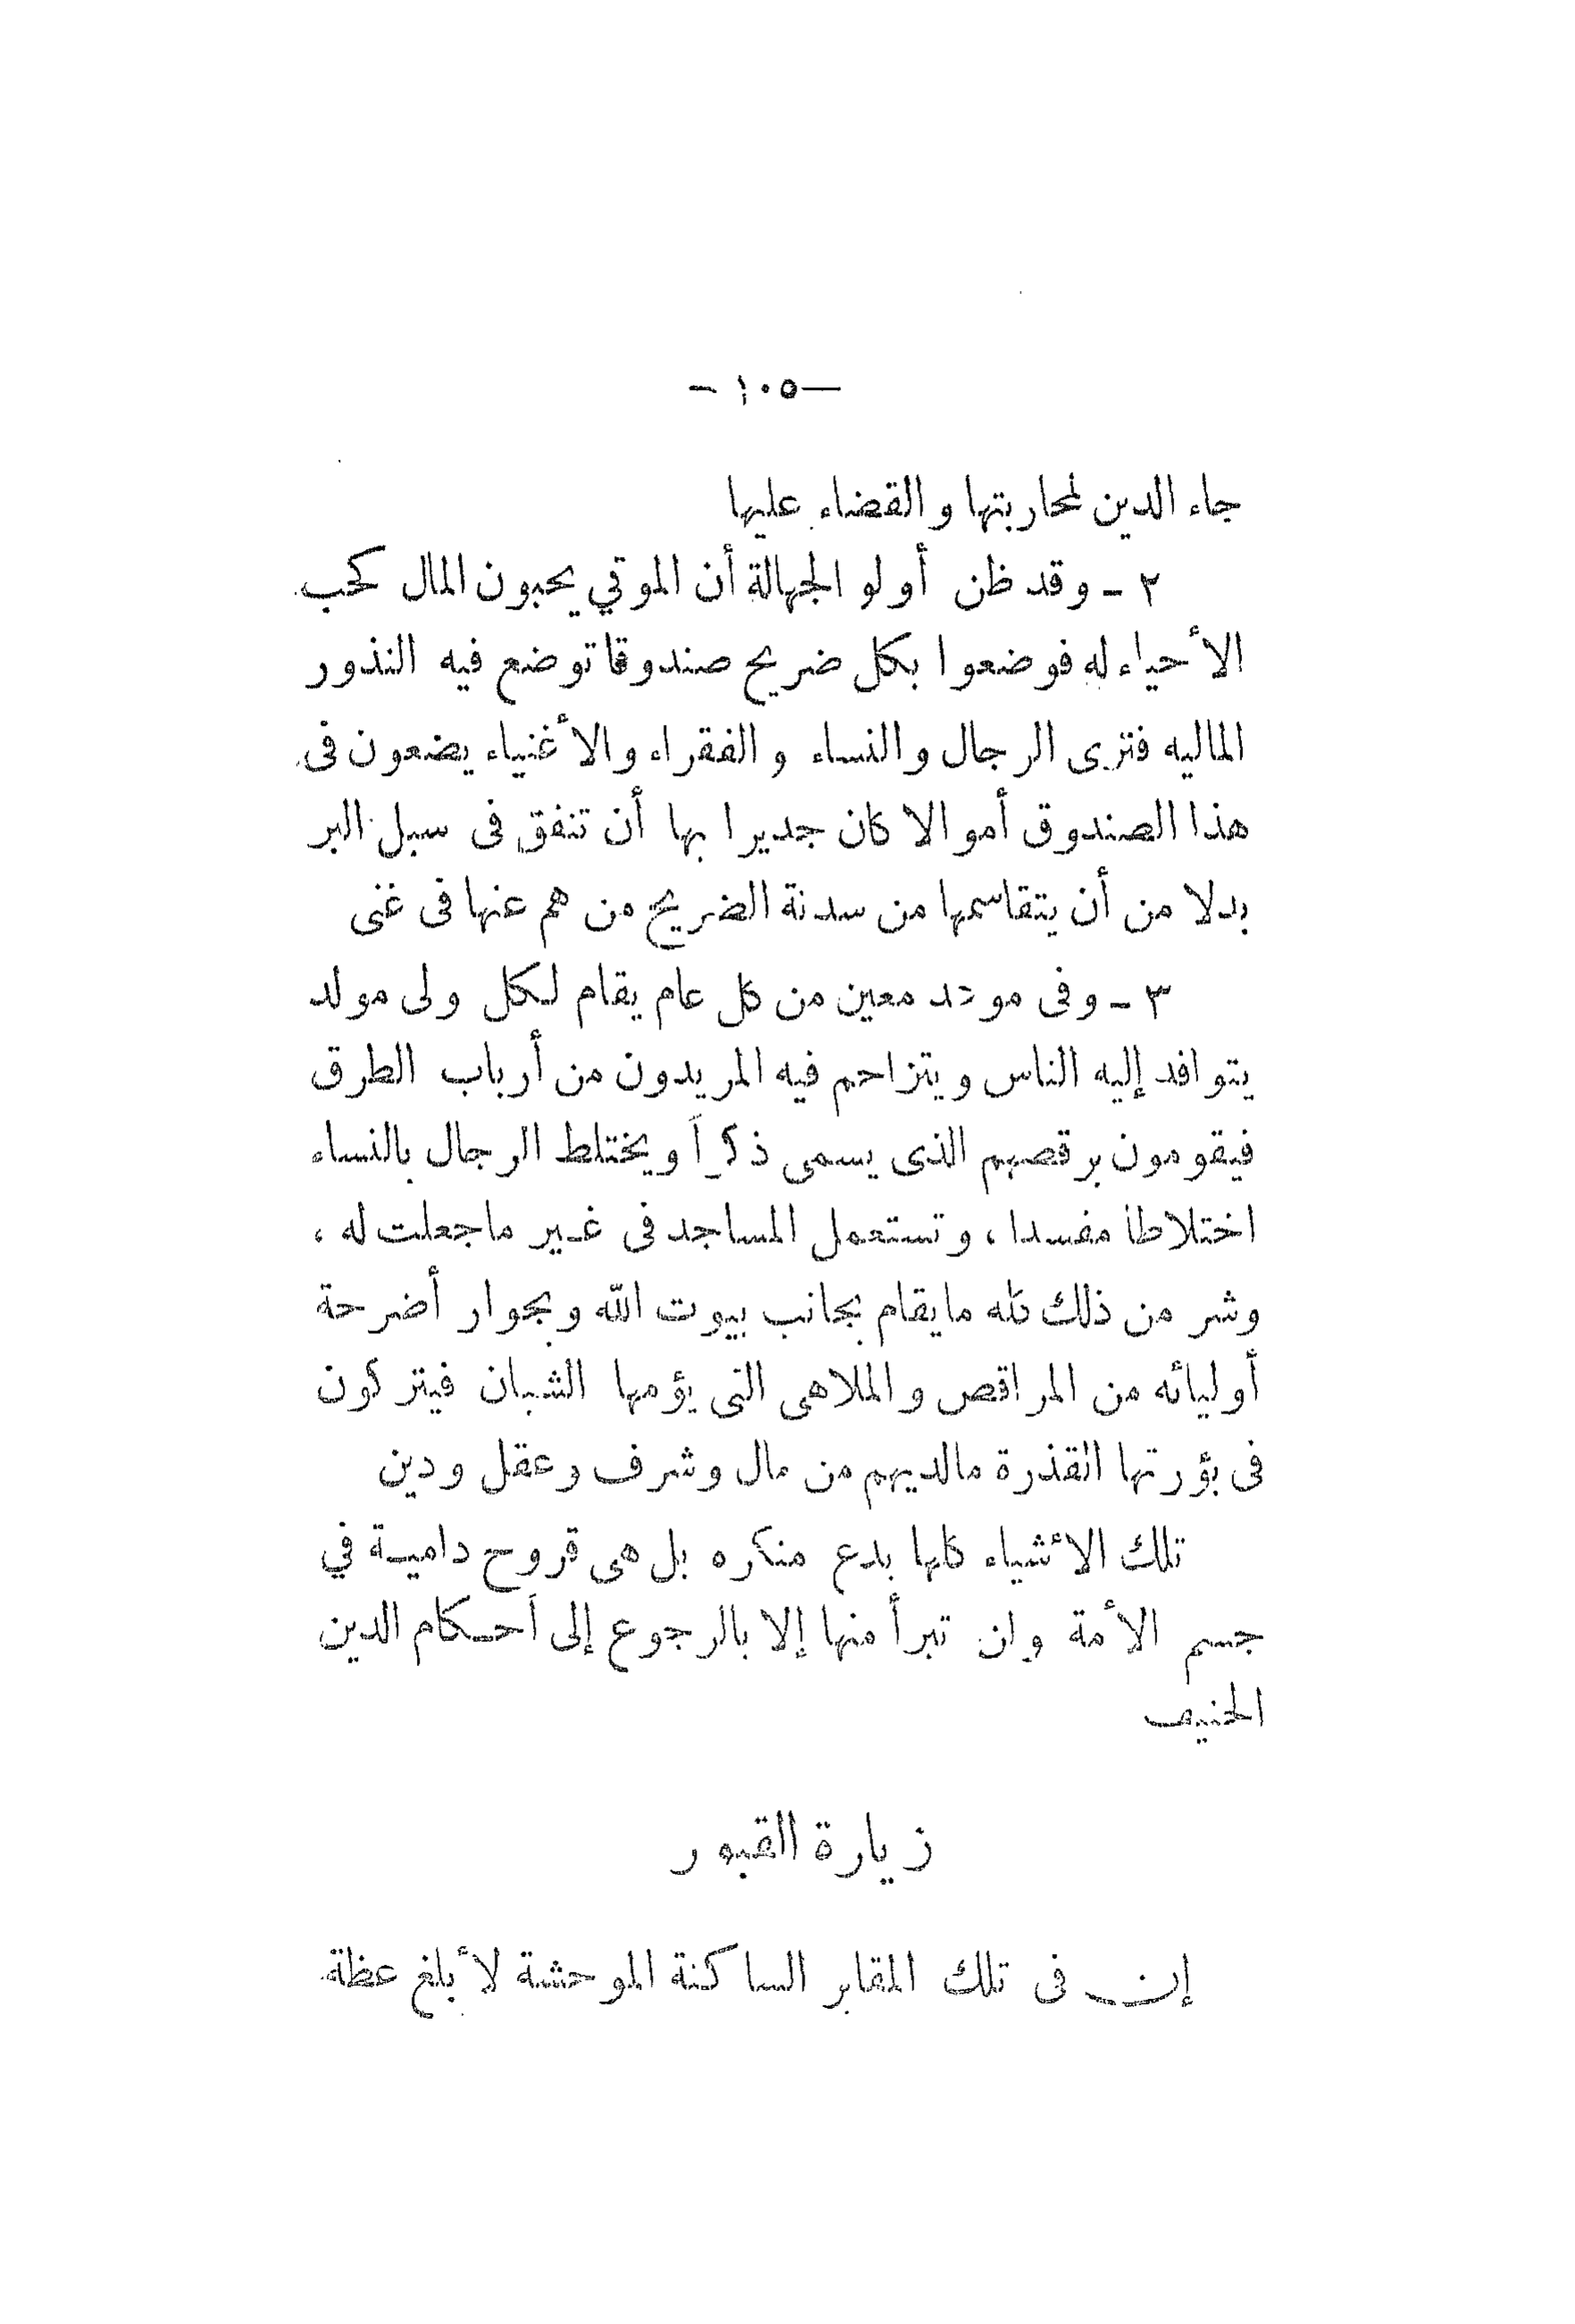 — ١٠٥ —
جاء الدين لمحاربتها والقضاء عليها
٢ - وقد ظن أولو الجهالة أن الموتي يحبون المال كحب
الأحياء له فوضعوا بكل ضريح صندوقا توضع فيه النذور
الماليه فترى الرجال والنساء والفقراء والأغنياء يضعون فى
هذا الصندوق أموالا كان جديرا بها أن تنفق فى سبل البر
بدلا من أن يتقاسمها من سدنة الضريح من هم عنها فى غنى
٣ - وفى موعد معين من كل عام يقام لكل ولى مولد
يتوافد إليه الناس ويتزاحم فيه المريدون من أرباب الطرق
فيقومون برقصهم الذى يسمى ذكراً ويختلط الرجال بالنساء
اختلاطا مفسدا ، وتستعمل المساجد فى غير ماجعلت له ،
وشر من ذلك كله مايقام بجانب بيوت الله وبجوار أضرحة
أوليائه من المراقص والملاهى التى يؤمها الشبان فيتركون
فى بؤرتها القذرة مالديهم من مال وشرف وعقل ودين
تلك الأشياء كلها بدع منكره بل هى قروح دامية في
جسم الأمة ولن تبرأ منها إلا بالرجوع إلى أحكام الدين
الحنيف
زيارة القبور
إن فى تلك المقابر الساكنة الموحشة لأبلغ عظة